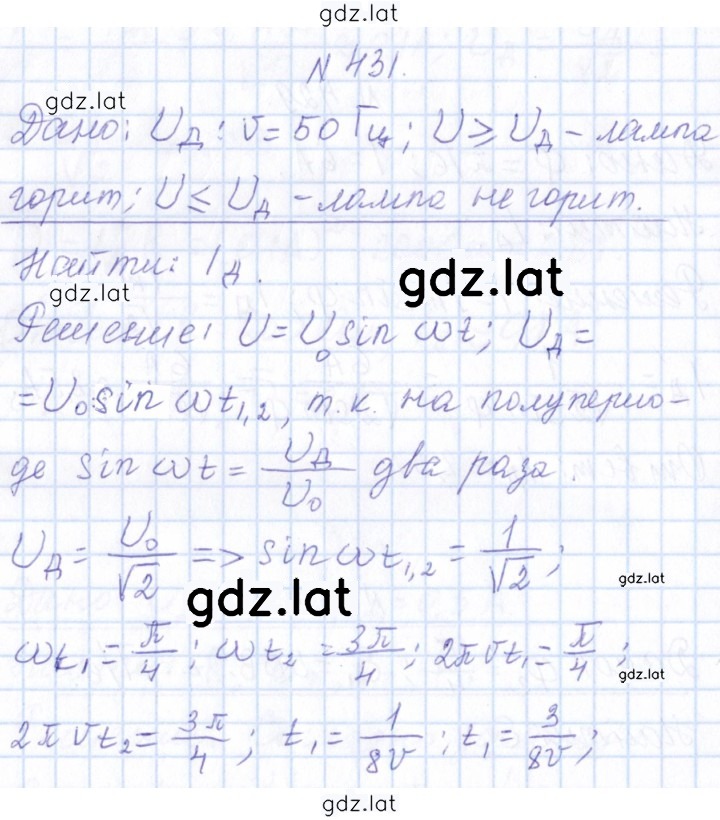 gdz.lat
N 431.
gdz.lat
Дано: U_Д; ν = 50 Гц; U ≥ U_Д - лампа
горит; U ≤ U_Д - лампа не горит.
Найти: I_Д.
gdz.lat
gdz.lat
Решение: U = U₀ sin ωt; U_Д =
= U₀ sin ωt₁,₂, т.к. на полуперио-
де sin ωt = U_Д/U₀ два раза.
U_Д = U₀/√2 => sin ωt₁,₂ = 1/√2;
gdz.lat
gdz.lat
ωt₁ = π/4; ωt₂ = 3π/4; 2πνt₁ = π/4;
gdz.lat
2πνt₂ = 3π/4; t₁ = 1/8ν; t₁ = 3/8ν;
gdz.lat